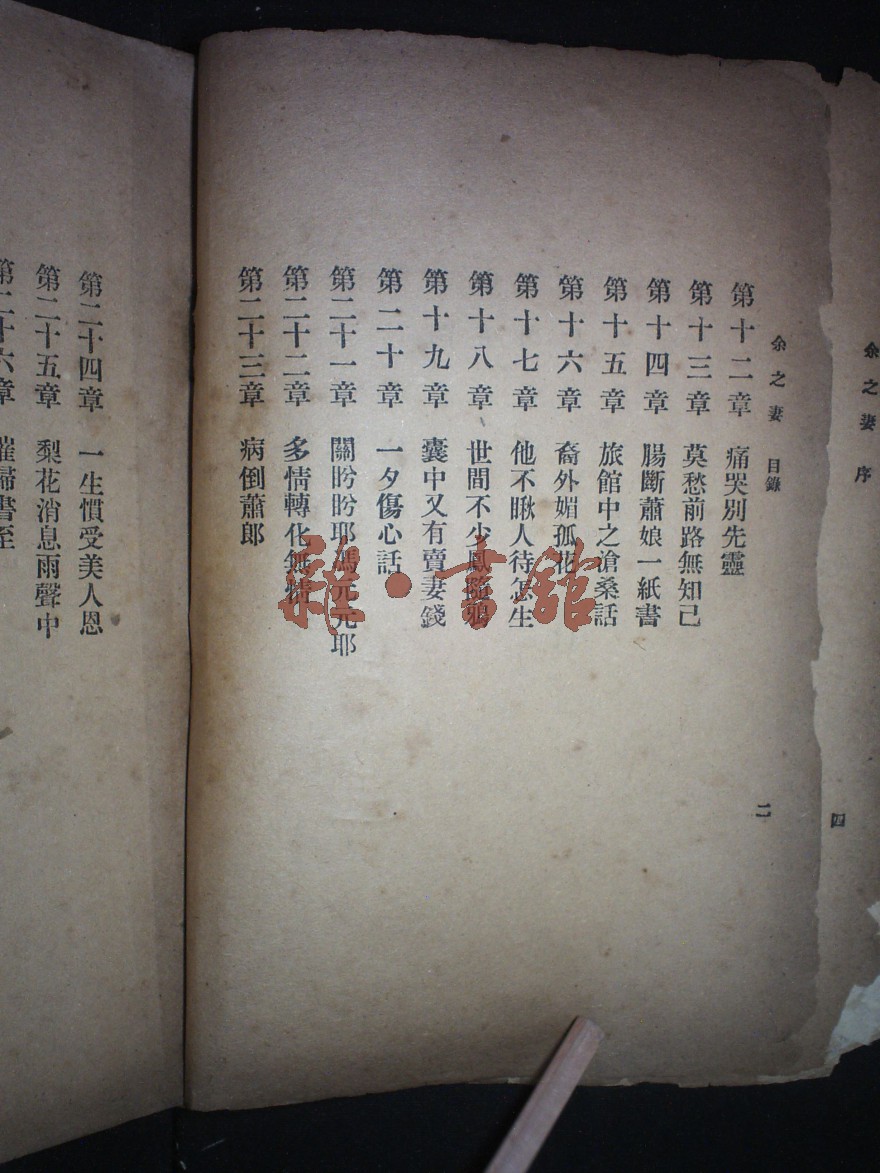 余之妻 序
四
余之妻 目錄
二
第十二章 痛哭別先靈
第十三章 莫愁前路無知己
第十四章 腸斷蕭娘一紙書
第十五章 旅館中之滄桑話
第十六章 裔外媚孤花
第十七章 他不瞅人待怎生
第十八章 世間不少鳳隨鴉
第十九章 囊中又有賣妻錢
第二十章 一夕傷心話
第二十一章 關盼盼耶馮元元耶
第二十二章 多情轉化無情
第二十三章 病倒蕭郎
第二十四章 一生慣受美人恩
第二十五章 梨花消息雨聲中
第二十六章 催歸書至
雜·書館